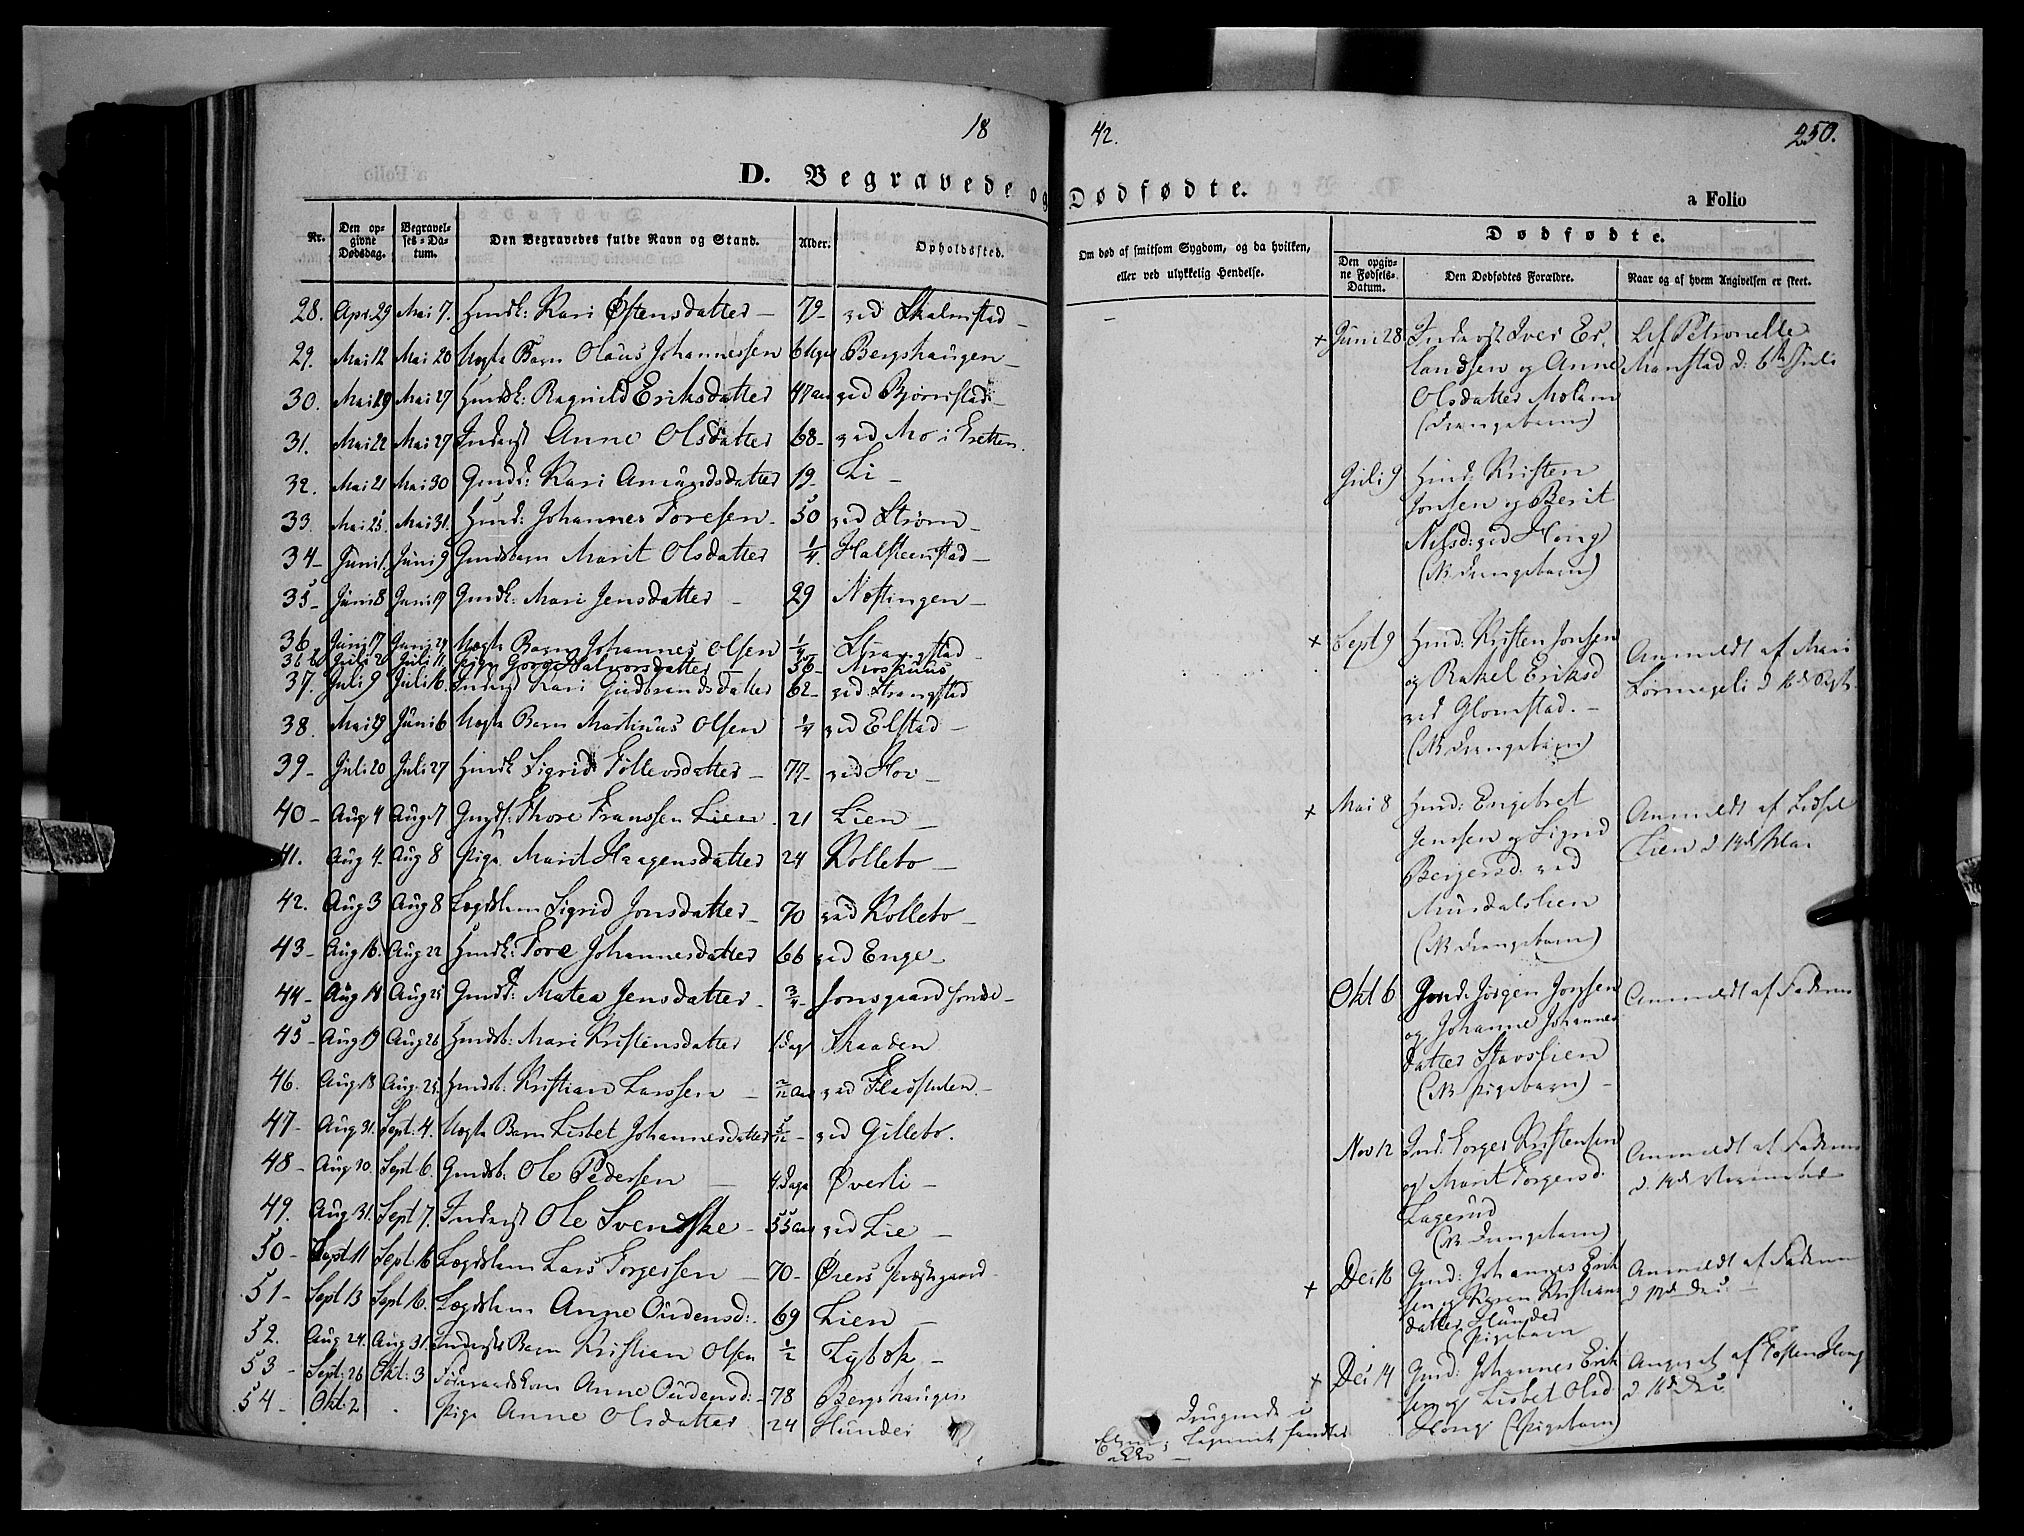 18
42.
250.
D. Begravede og Dødfødte.
a Folio
Nr.
Den opgivne Dødsdag.
Begravelses-Datum.
Den Begravedes fulde Navn og Stand.
Alder.
Opholdssted.
Om død af smitsom Sygdom, og da hvilken,
eller ved ulykkelig Hendelse.
Dødfødte.
Den opgivne Fødsels-Datum.
Den Dødfødtes Forældre.
Naar og af hvem Angivelsen er skeet.
28. Apr. 29 Mai 7. Huusk: Kari Østensdatter – 79– ved Skalmstad –
29. Mai 12 Mai 20 Uægte Barn Olaus Johannessen 6 Uger Bergshaugen –
30. Mai 19 Mai 27 Huusk: Ragnild Eriksdatter 47 aar ved Bjørnstad –
31. Mai 22 Mai 27 Inderst Anne Olsdatter 68– ved Mo i Eretten.
32. Mai 21 Mai 30 Gmdd: Kari Amundsdatter 19– Li –
33. Mai 25 Mai 31. Husmd: Johannes Toresen – 50 ved Strøm –
34– Juni 1. Juni 9 Gmdsbarn Marit Olsdatter 1/4. Halsteenstad –
35– Juni 8 Juni 19 Gmdk: Mari Jensdatter – 29 Nostingen –
36 Juni 17 Juni 24 Uægte Barn Johannes Olsen 1/4 Strangstad
36 b Juli 2 Juli 11 Pige Goro Halvorsdatter 56 Moshuus
37. Juli 9 Juli 16. Inderst Kari Gudbrandsdatter 62– ved Strangstad
38. Mai 29 Juni 6 Uægte Barn Martinus Olsen 1/4 ved Elstad –
39– Juli 20 Juli 27 Husmk Sigrid Tollevsdatter – 77– ved Hov –
40– Aug 4 Aug 17 Gmds: Thore Franssen Lien 21 Lien –
41. Aug 4– Aug 8 Pige Marit Haagensdatter 24 Kollebo –
42. Aug 3 Aug 8 Lægdslem Sigrid Jonsdatter – 70 ved Kollebo –
43– Aug 16. Aug 22 Husmk: Tore Johannesdatter 66 ved Enge –
44– Aug 18 Aug 25 Gmdd: Matea Jensdatter – 3/4– Jonsgaard søndre –
45– Aug 19 Aug 26 Husmb: Mari Kristensdatter 1 Dag Skaaden
46. Aug 18 Aug 25. Husmb. Kristian Larssen – 2/12 Aar ved Fladsluten –
47– Aug 31. Sept. 4. Uægte Barn Lisbet Johannesdatter 5/12 – ved Gillebo.
48– Aug 30. Sept. 6. Gmdsb. Ole Pedersen – 4 Dage Øverli –
49. Aug 31. Sept 7. Inderst Ole Svendske – 55 aar ved Lie –
50– Sept 11 Sept: 16 Lægdslem Lars Torgersen – 70– Øiers Præstgaard –
51– Sept 13 Sept 16. Lægdslem Anne Oudensd: – 69 Lien –
52. Aug 24. Aug 31. Inderst Barn Kristian Olsen 1/2 Lybæk –
53– Sept: 26 Okt: 3 Føderaadskone Anne Oudensd: – 78 Bergshaugen
54– Okt 2 . Pige Anne Olsdatter 24 Hunder
Druknede i
Lagunet fundtes
ikke –
+ Juni 28 Inderst Iver Er-
landsen og Anne
Olsdatter Moløm
(Drengebarn)
Lef Petronelle
Manstad d: 6te Juli
Juli 9 Husmd: Kristen
Jonsen og Berit
Nilsd: ved Hong
(NB Drengebarn)
+ Sept 9 Husmd: Kristen Jonsen
og Rakel Eriksd
ved Glomstad. –
(NB Drengebarn)
Anmeldt af Mari
Sørmageli d 16de Sept.
+ Mai 8 Husmd: Engebret
Jenssen og Sigrid
Bergersd: ved
Musdalslien
(NB Drengebarn)
Anmeldt af Lidsel
Lien d 14de Mai
Okt 6 Gmd: Jørgen Jonsen
og Johanne Johannes
datter Stavslien
(NB Pigebarn) –
Anmeldt af Faderen
Nov 12 Ind: Torger Kristensen
og Marit Torgersd.
Lagerud
(NB Drengebarn)
Anmeldt af Faderen
d. 14de November
+ Dec 16 Gmd: Johannes Erik
sen og Karen Kristians
datter Hunder
(Pigebarn
Anmeldt af Faderen
d 17de Dec: –
+ Dec 14 Gmd: Johannes Erik
sen og Lisbet Olsd
Hong (Pigebarn)
Angivet af Østen Hong
d 16de Dec